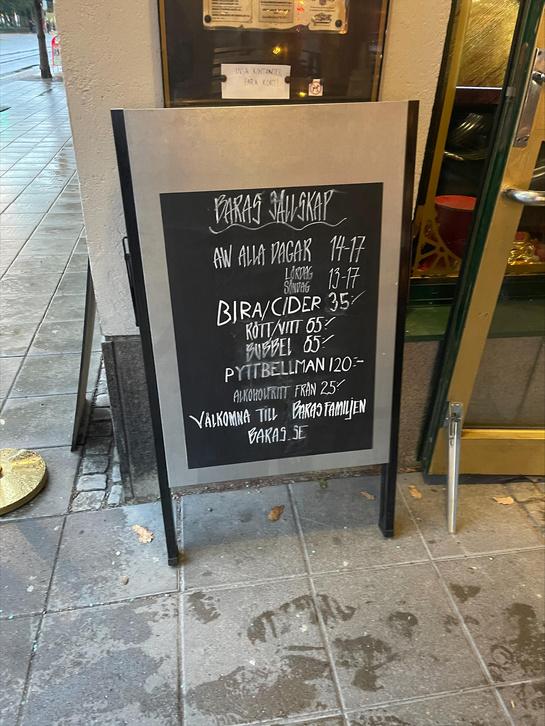 INGA KONTANTER
BARA KORT!
BARAS SÄLLSKAP
AW ALLA DAGAR 14-17
LÖRDAG
SÖNDAG 13-17
BIRA/CIDER 35:-
RÖTT/VITT 65:-
BUBBEL 65:-
PYTTBELLMAN 120:-
ALKOHOLFRITT FRÅN 25:-
VÄLKOMNA TILL BARASFAMILJEN
BARAS.SE